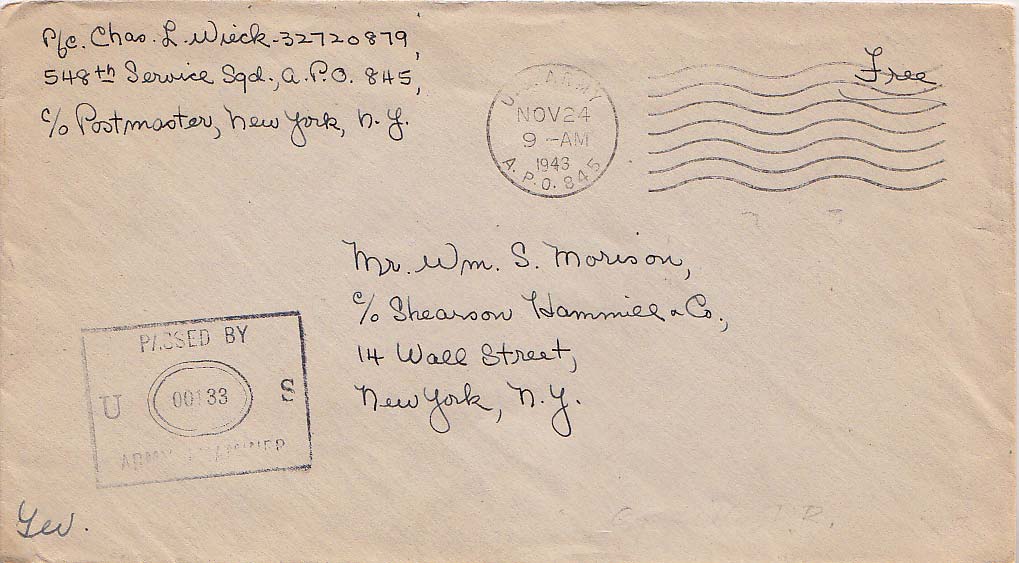 Pfc. Chas. L. Wieck - 32720879,
548th Service Sqd., A.P.O. 845,
c/o Postmaster, New York, N.Y.
Free
U.S. ARMY
NOV 24
9 - AM
1943
A.P.O. 845
Mr. Wm. S. Morison,
c/o Shearson Hammill & Co.,
14 Wall Street,
New York, N.Y.
PASSED BY
U 00133 S
ARMY EXAMINER